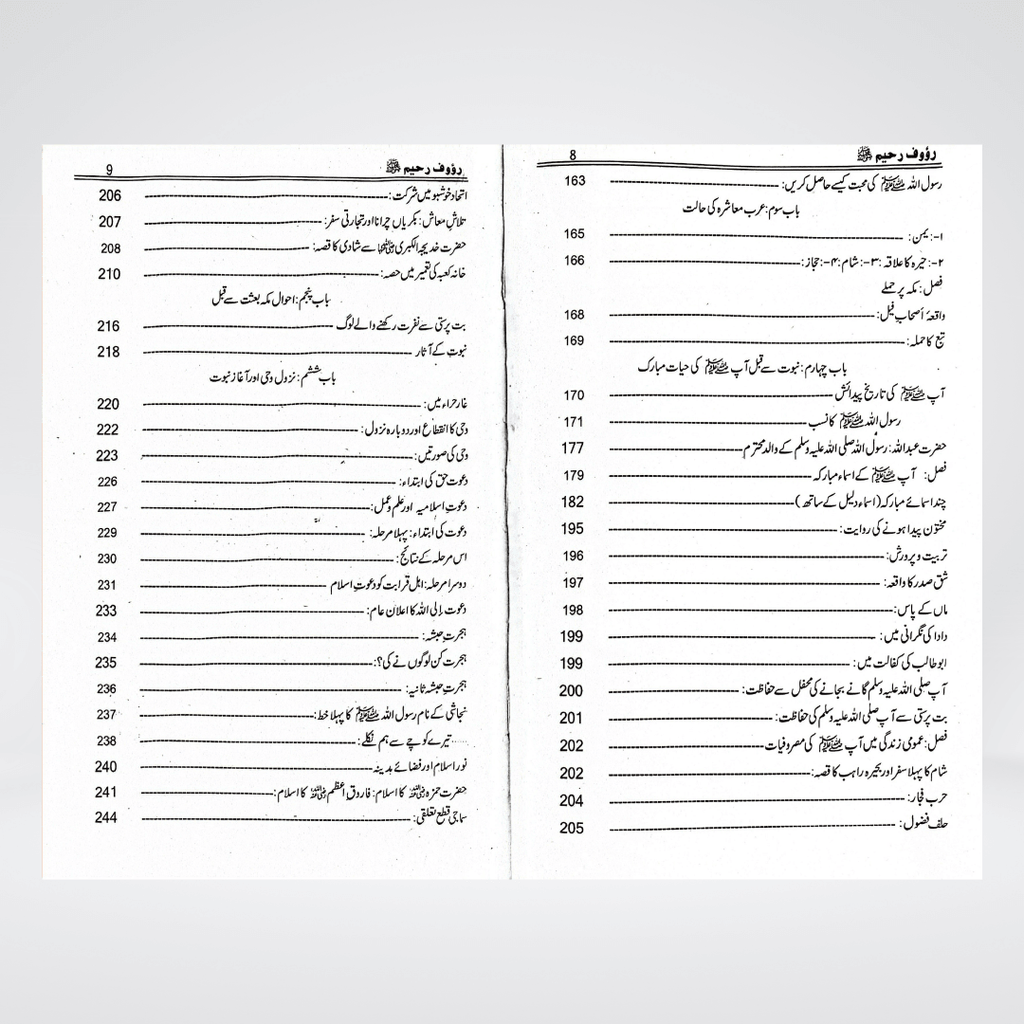 رؤوف رحیم ﷺ 8
رسول اللہ ﷺ کی محبت کیسے حاصل کریں: 163
باب سوم: عرب معاشرہ کی حالت
۱-: یمن: 165
۲-: حیرہ کا علاقہ: ۳-: شام: ۴-: حجاز: 166
فصل: مکہ پر حملے
واقعۂ اُصحابِ فیل: 168
تبع کا حملہ: 169
باب چہارم: نبوت سے قبل آپ ﷺ کی حیات مبارک
آپ ﷺ کی تاریخ پیدائش 170
رسول اللہ ﷺ کا نسب 171
حضرت عبداللہ: رسول اللہ صلی اللہ علیہ وسلم کے والد محترم 177
فصل: آپ ﷺ کے اسماء مبارکہ 179
چند اسمائے مبارکہ (اسماء دلیل کے ساتھ) 182
مختون پیدا ہونے کی روایت: 195
تربیت و پرورش: 196
شق صدر کا واقعہ: 197
ماں کے پاس: 198
دادا کی نگرانی میں: 199
ابوطالب کی کفالت میں: 199
آپ صلی اللہ علیہ وسلم گانے بجانے کی محفل سے حفاظت: 200
بت پرستی سے آپ صلی اللہ علیہ وسلم کی حفاظت: 201
فصل: عمومی زندگی میں آپ ﷺ کی مصروفیات 202
شام کا پہلا سفر اور بحیرہ راہب کا قصہ: 202
حرب فجار: 204
حلف فضول: 205
رؤوف رحیم ﷺ 9
اتحاد خوشبو میں شرکت: 206
تلاشِ معاش: بکریاں چرانا اور تجارتی سفر: 207
حضرت خدیجۃ الکبریٰ رضی اللہ عنہا سے شادی کا قصہ: 208
خانہ کعبہ کی تعمیر میں حصہ: 210
باب پنجم: احوال مکہ بعثت سے قبل
بت پرستی سے نفرت رکھنے والے لوگ 216
نبوت کے آثار 218
باب ششم: نزول وحی اور آغاز نبوت
غار حراء میں: 220
وحی کا انقطاع اور دوبارہ نزول: 222
وحی کی صورتیں: 223
دعوت حق کی ابتداء: 226
دعوتِ اسلامیہ اور علم و عمل: 227
دعوت کی ابتداء: پہلا مرحلہ: 229
اس مرحلہ کے نتائج: 230
دوسرا مرحلہ: اہل قرابت کو دعوتِ اسلام 231
دعوت إلی اللہ کا اعلان عام: 233
ہجرتِ حبشہ: 234
ہجرت کن لوگوں نے کی؟: 235
ہجرتِ حبشہ ثانیہ: 236
نجاشی کے نام رسول اللہ ﷺ کا پہلا خط: 237
.....تیرے کوچے سے ہم نکلے: 238
نور اسلام اور فضائے مدینہ 240
حضرت حمزہ رضی اللہ عنہ کا اسلام: فاروقِ اُعظم رضی اللہ عنہ کا اسلام: 241
سماجی قطع تعلقی: 244